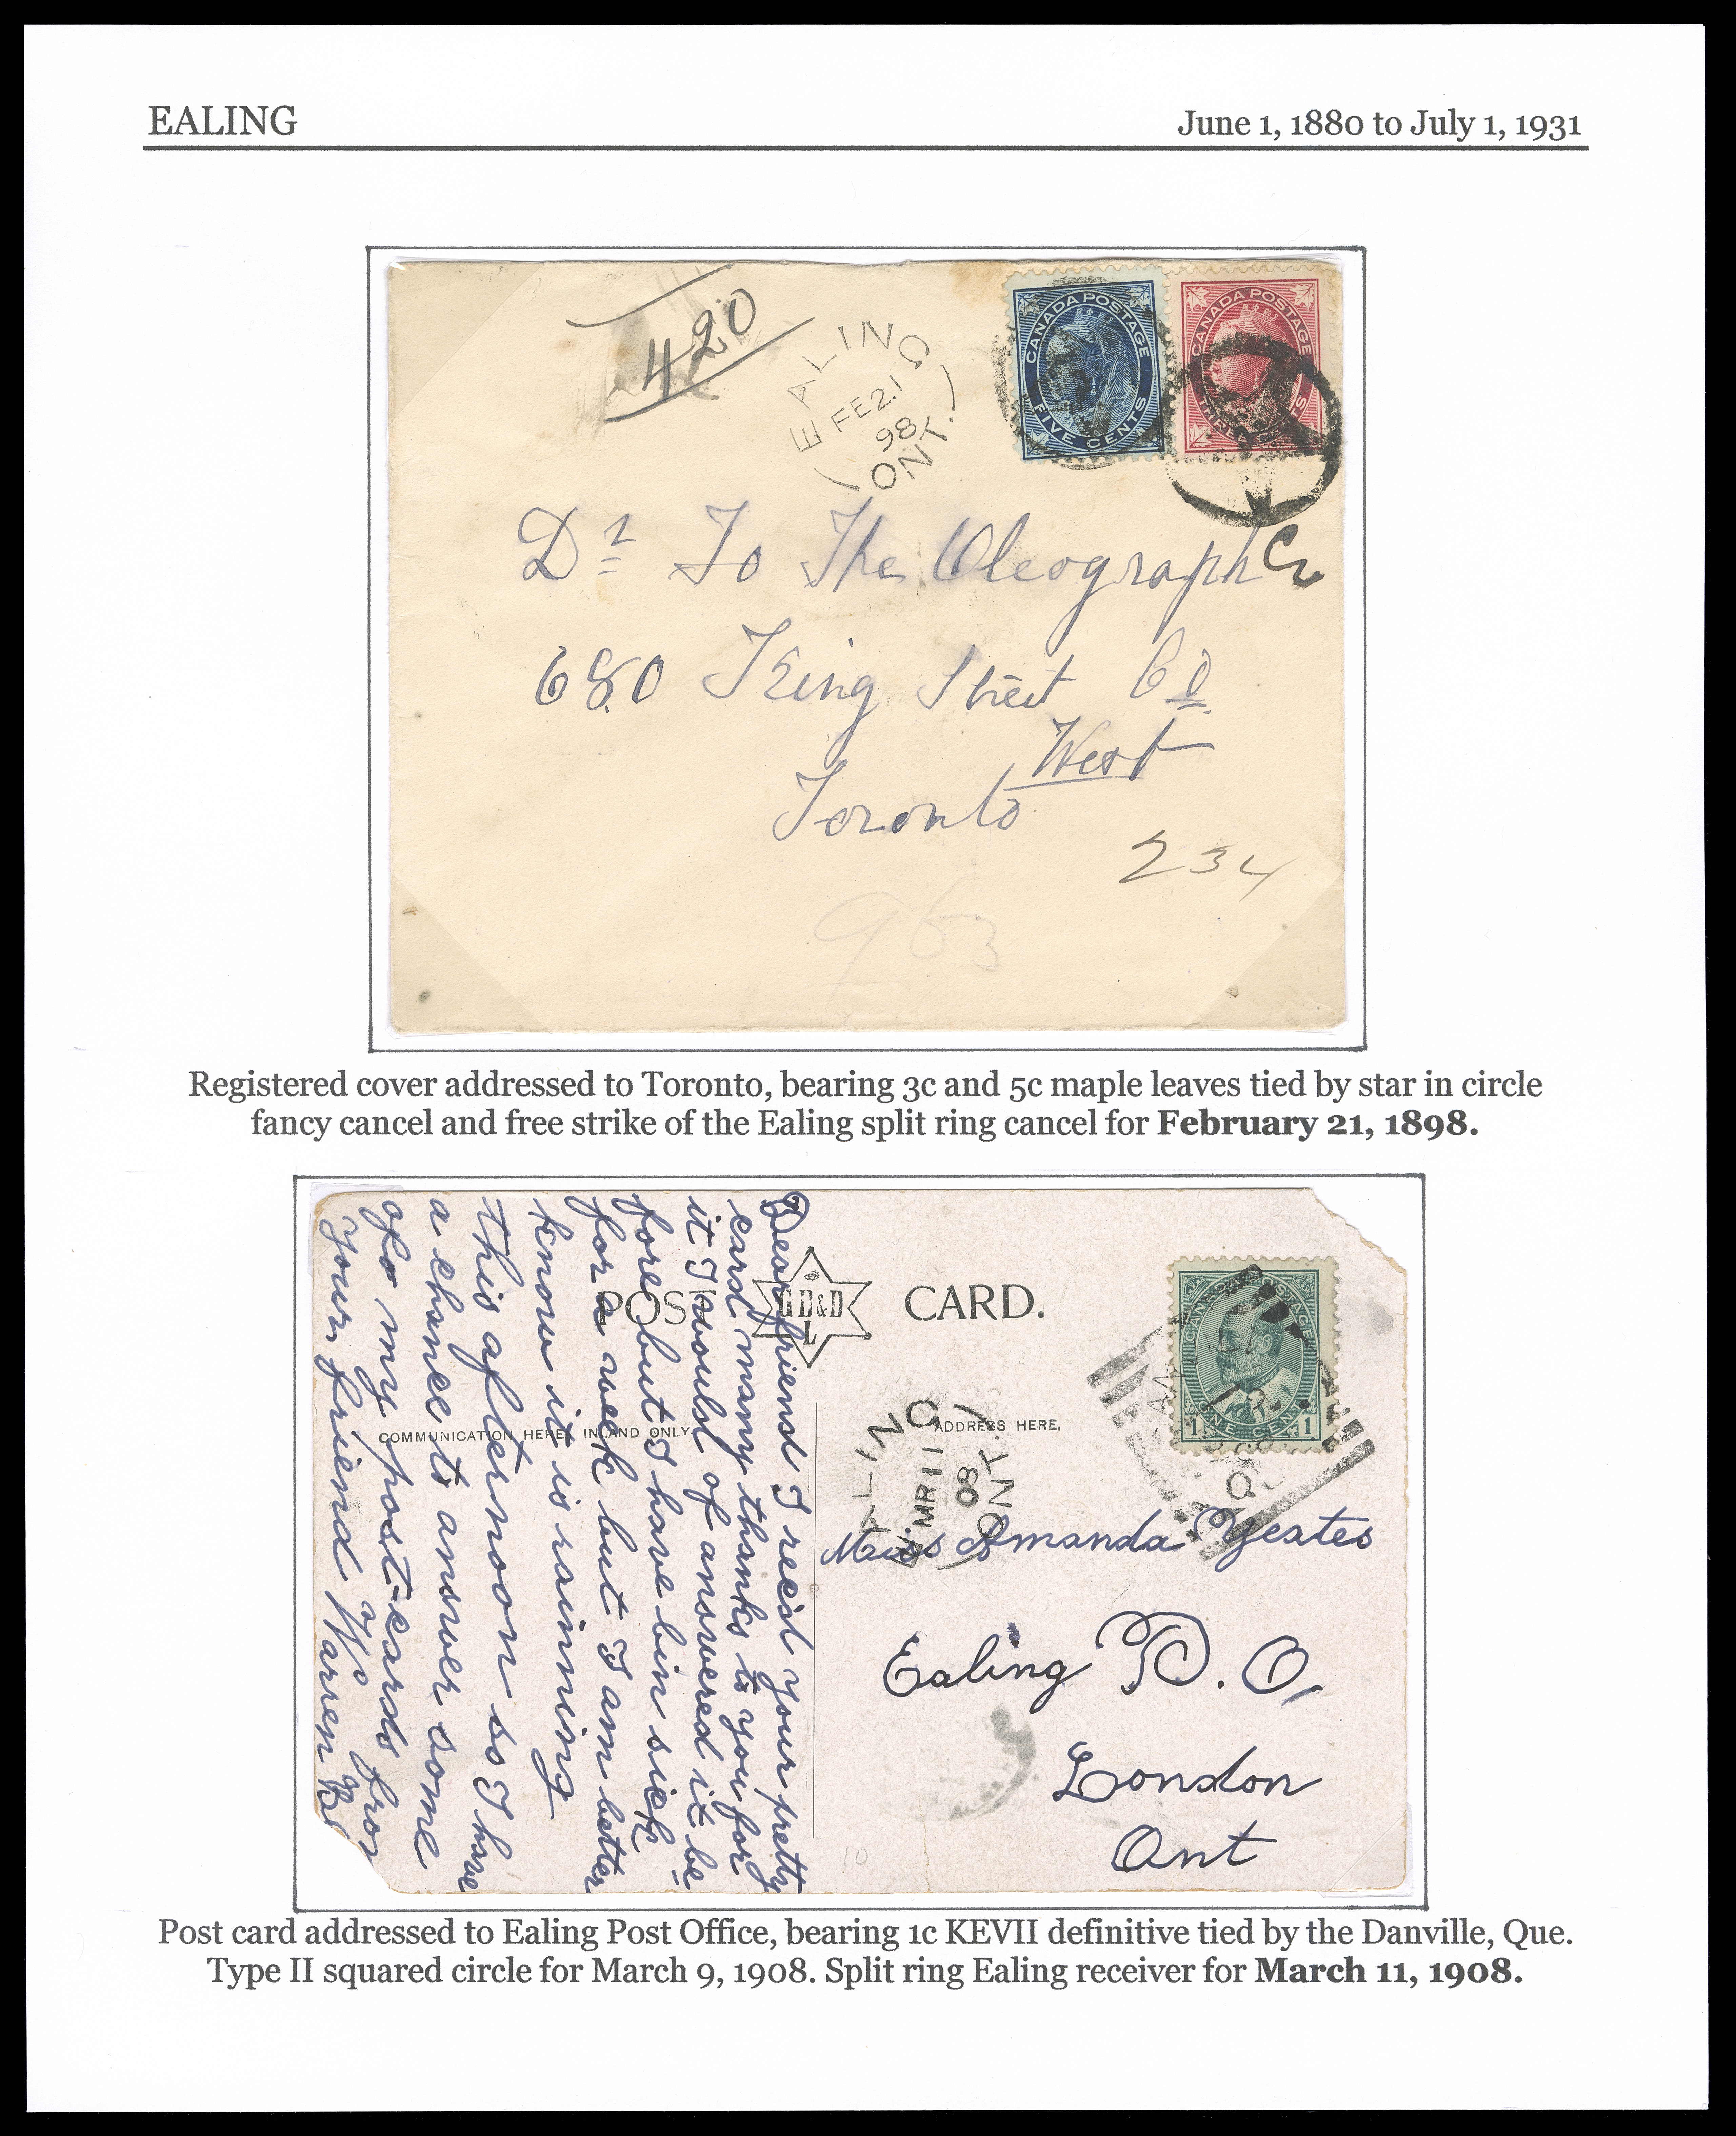 EALING
June 1, 1880 to July 1, 1931
420
EALING
FE 21
98
ONT.
CANADA POSTAGE
FIVE CENTS
CANADA POSTAGE
THREE CENTS
Dr To The Oleograph Co
680 King Street Co
West
Toronto
234
963
Registered cover addressed to Toronto, bearing 3c and 5c maple leaves tied by star in circle
fancy cancel and free strike of the Ealing split ring cancel for February 21, 1898.
POST CARD.
G D&D
L
COMMUNICATION HERE, INLAND ONLY.
ADDRESS HERE.
Dear friend I rec'd your pretty
card many thanks to you for
it I would of answered it be
fore but I have bin sick
for a week but I am better
know it is rainning
this afternoon so I have
a chance to answer some
of my post-cards from
your friend Warren
CANADA POSTAGE
1 ONE CENT 1
EALING
MR 11
08
ONT.
Miss Amanda Yeates
Ealing P. O.
London
Ont
10
Post card addressed to Ealing Post Office, bearing 1c KEVII definitive tied by the Danville, Que.
Type II squared circle for March 9, 1908. Split ring Ealing receiver for March 11, 1908.